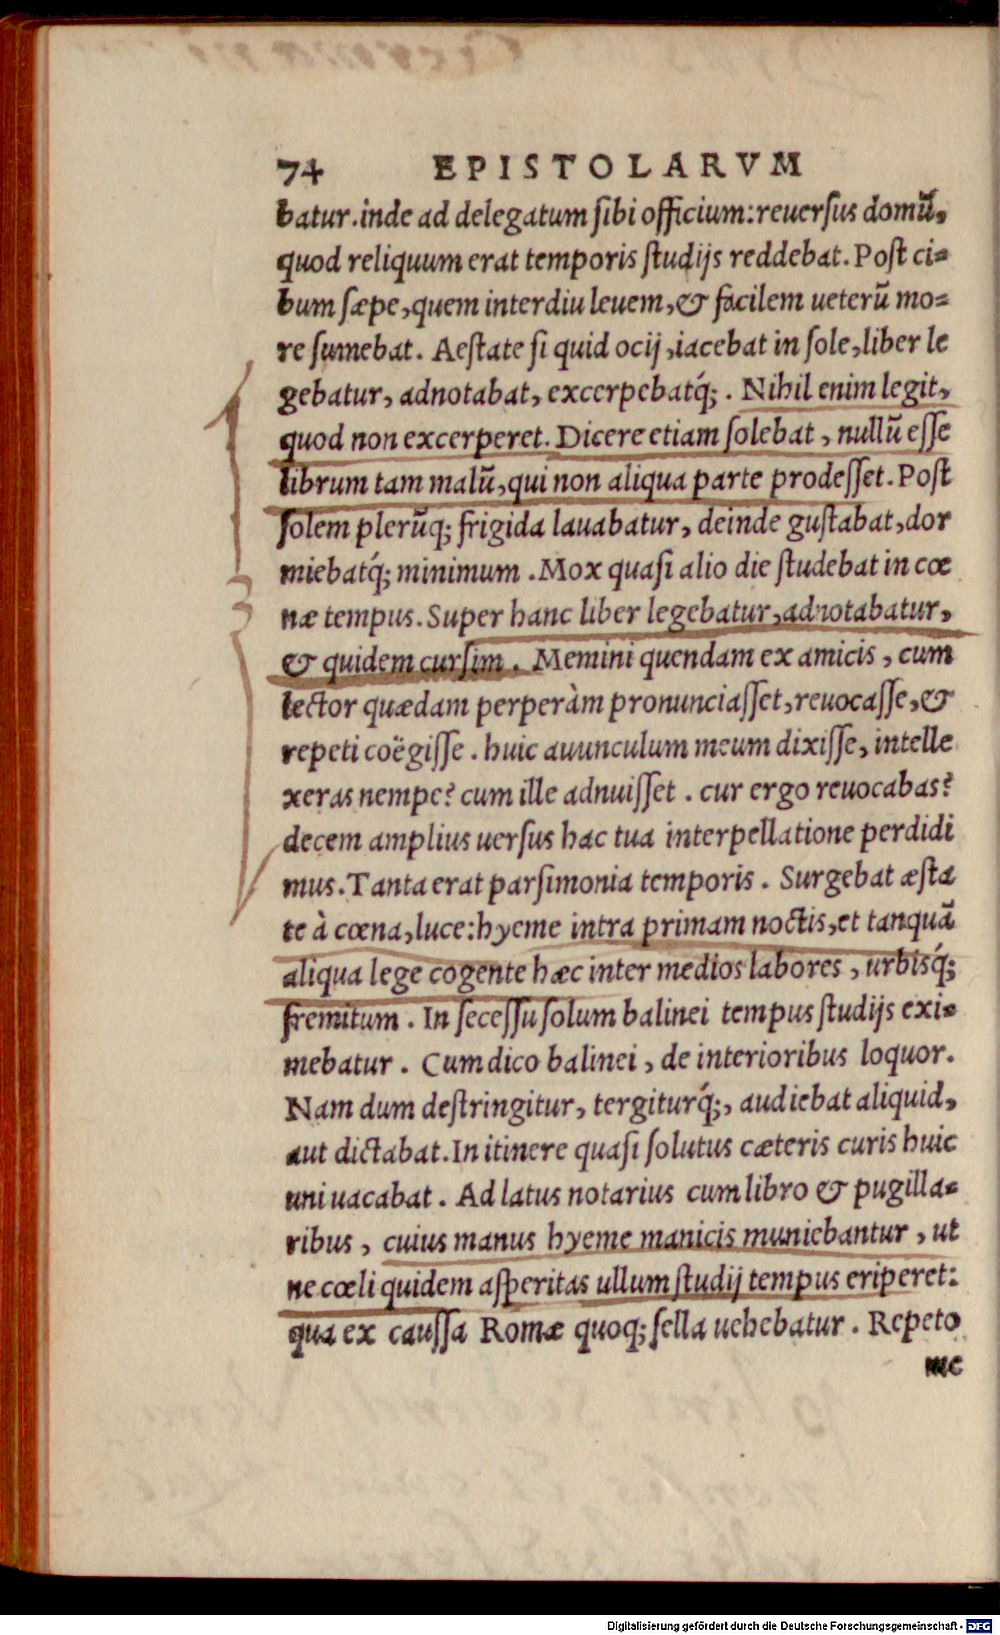 74 EPISTOLARVM
batur.inde ad delegatum ſibi officium:reuerſus domũ,
quod reliquum erat temporis ſtudijs reddebat.Poſt ci=
bum ſæpe,quem interdiu leuem,& facilem ueterũ mo=
re ſumebat. Aeſtate ſi quid ocij,iacebat in ſole,liber le
gebatur, adnotabat, excerpebatq́;. Nihil enim legit,
quod non excerperet.Dicere etiam ſolebat, nullũ eſſe
librum tam malũ,qui non aliqua parte prodeſſet.Poſt
ſolem plerũq; frigida lauabatur, deinde guſtabat,dor
miebatq́; minimum.Mox quaſi alio die ſtudebat in cœ
næ tempus.Super hanc liber legebatur,adnotabatur,
& quidem curſim. Memini quendam ex amicis, cum
lector quædam perperàm pronunciaſſet,reuocaſſe,&
repeti coëgiſſe. huic auunculum meum dixiſſe, intelle
xeras nempe? cum ille adnuiſſet. cur ergo reuocabas?
decem amplius uerſus hac tua interpellatione perdidi
mus.Tanta erat parſimonia temporis. Surgebat æſta
te à cœna,luce:hyeme intra primam noctis,et tanquã
aliqua lege cogente hæc inter medios labores, urbisq́;
fremitum. In ſeceſſu ſolum balinei tempus ſtudijs exi=
mebatur. Cum dico balinei, de interioribus loquor.
Nam dum deſtringitur, tergiturq́;, audiebat aliquid,
aut dictabat.In itinere quaſi ſolutus cæteris curis huic
uni uacabat. Ad latus notarius cum libro & pugilla=
ribus, cuius manus hyeme manicis muniebantur, ut
ne cœli quidem aſperitas ullum ſtudij tempus eriperet:
qua ex cauſſa Romæ quoq; ſella uehebatur. Repeto
me
Digitalisierung gefördert durch die Deutsche Forschungsgemeinschaft - DFG